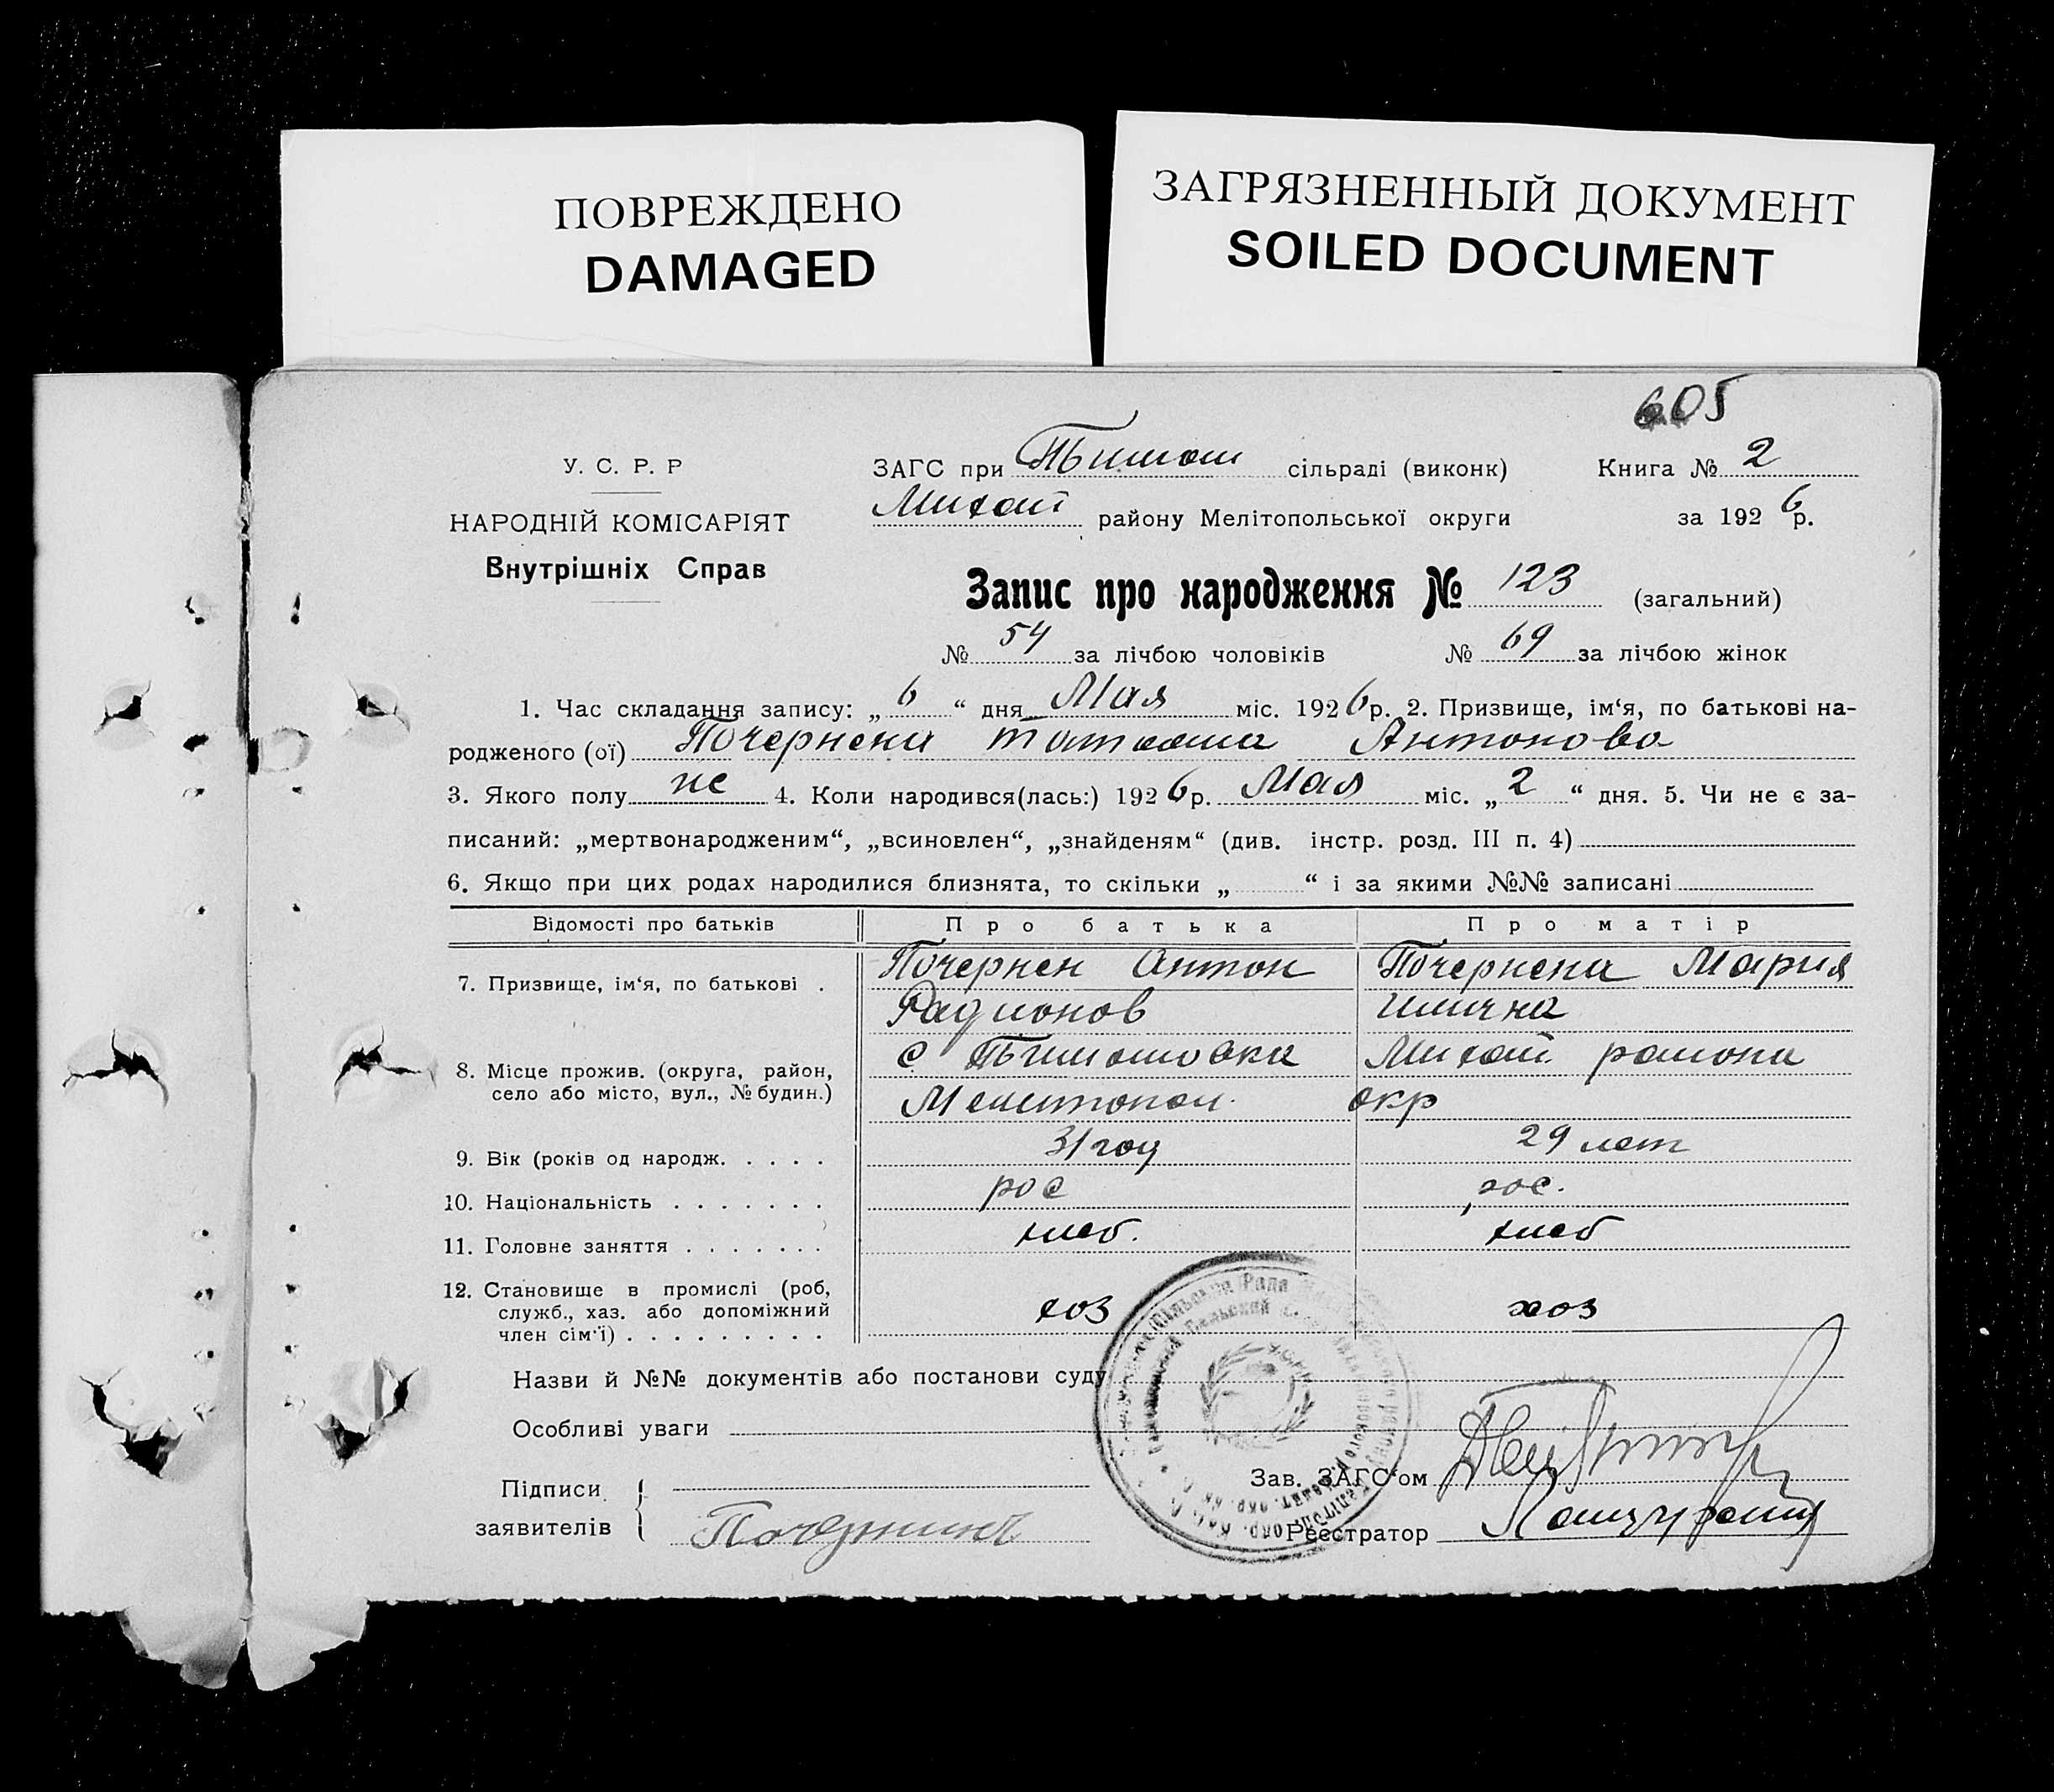 ПОВРЕЖДЕНО
DAMAGED
ЗАГРЯЗНЕННЫЙ ДОКУМЕНТ
SOILED DOCUMENT
605
У. С. Р. Р
НАРОДНІЙ КОМІСАРІЯТ
Внутрішніх Справ
ЗАГС при Тимош сільраді (виконк) Книга № 2
Михай району Мелітопольської округи за 1926 р.
Запис про народження № 123 (загальний)
№ 54 за лічбою чоловіків № 69 за лічбою жінок
1. Час складання запису: „ 6 “ дня Мая міс. 1926 р. 2. Призвище, ім‘я, по батькові на-
родженого (ої) Почернена Татьяна Антонова
3. Якого полу же 4. Коли народився(лась:) 1926 р. Мая міс. „ 2 “ дня. 5. Чи не є за-
писаний: „мертвонародженим“, „всиновлен“, „знайденям“ (див. інстр. розд. III п. 4)
6. Якщо при цих родах народилися близнята, то скільки „ “ і за якими №№ записані
Відомості про батьків Про батька Про матір
7. Призвище, ім‘я, по батькові . Почернен Антон Почернена Мария
Радионов
8. Місце прожив. (округа, район, с Тимошовка Михай района
село або місто, вул., № будин.) Мелитопол. окр
9. Вік (років од народж. . . . . 31 год 29 лет
10. Національність . . . . . . . рос рос.
11. Головне заняття . . . . . . . хлеб. хлеб
12. Становище в промислі (роб,
служб., хаз. або допоміжний хоз хоз
член сім‘ї) . . . . . . . . .
Назви й №№ документів або постанови суду
Особливі уваги
Підписи
заявителів
Зав. ЗАГС‘ом
Реєстратор